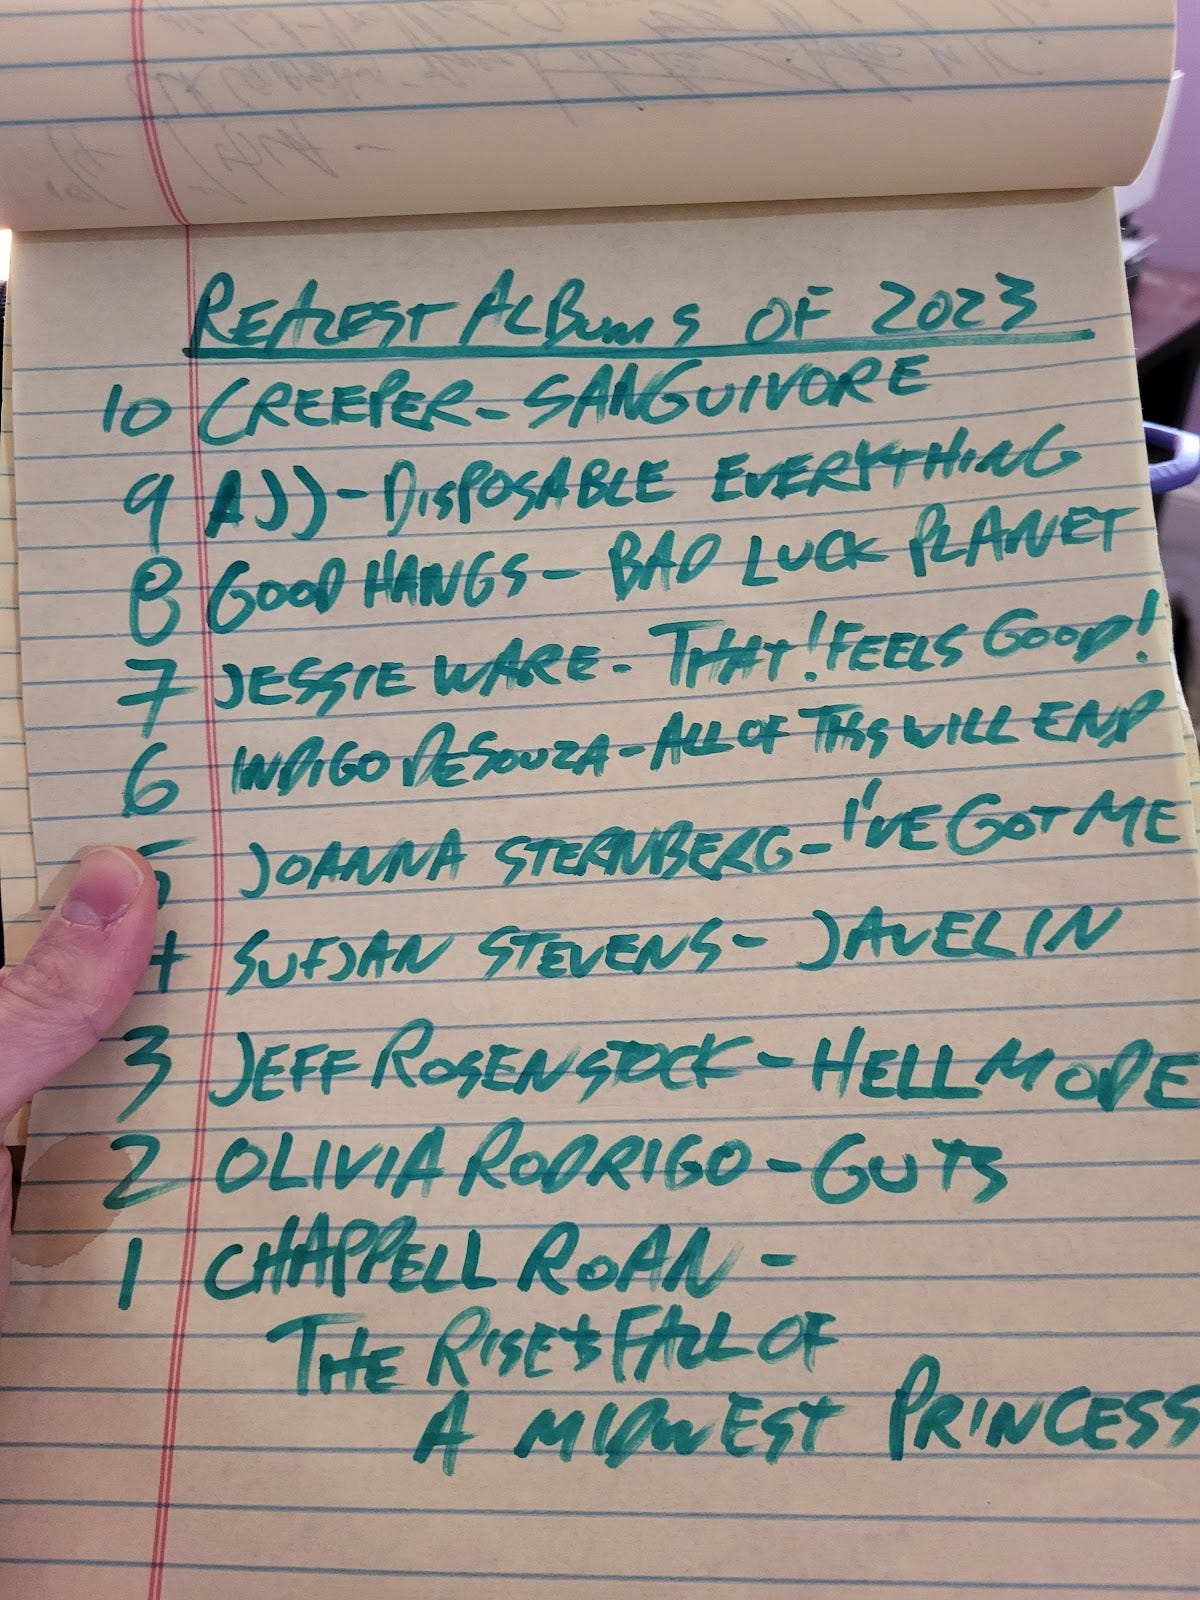 REALEST ALBUMS OF 2023
10 CREEPER - SANGUIVORE
9 AJJ - DISPOSABLE EVERYTHING
8 GOOD HANGS - BAD LUCK PLANET
7 JESSIE WARE - THAT! FEELS GOOD!
6 INDIGO DESOUZA - ALL OF THIS WILL END
5 JOANNA STERNBERG - I'VE GOT ME
4 SUFJAN STEVENS - JAVELIN
3 JEFF ROSENSTOCK - HELLMODE
2 OLIVIA RODRIGO - GUTS
1 CHAPPELL ROAN -
THE RISE & FALL OF
A MIDWEST PRINCESS